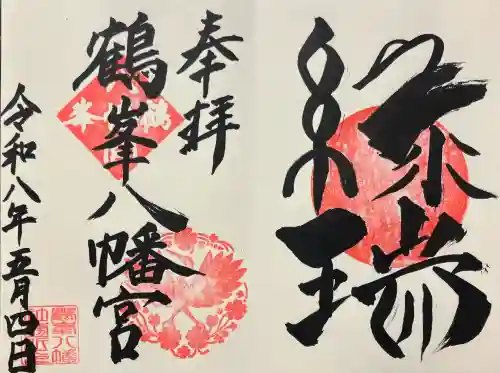 緑瑞
奉拝
鶴峯八幡宮
令和八年五月四日